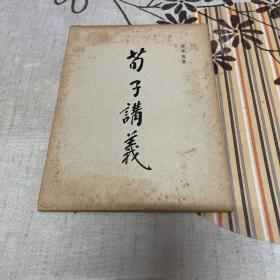 荀子講義